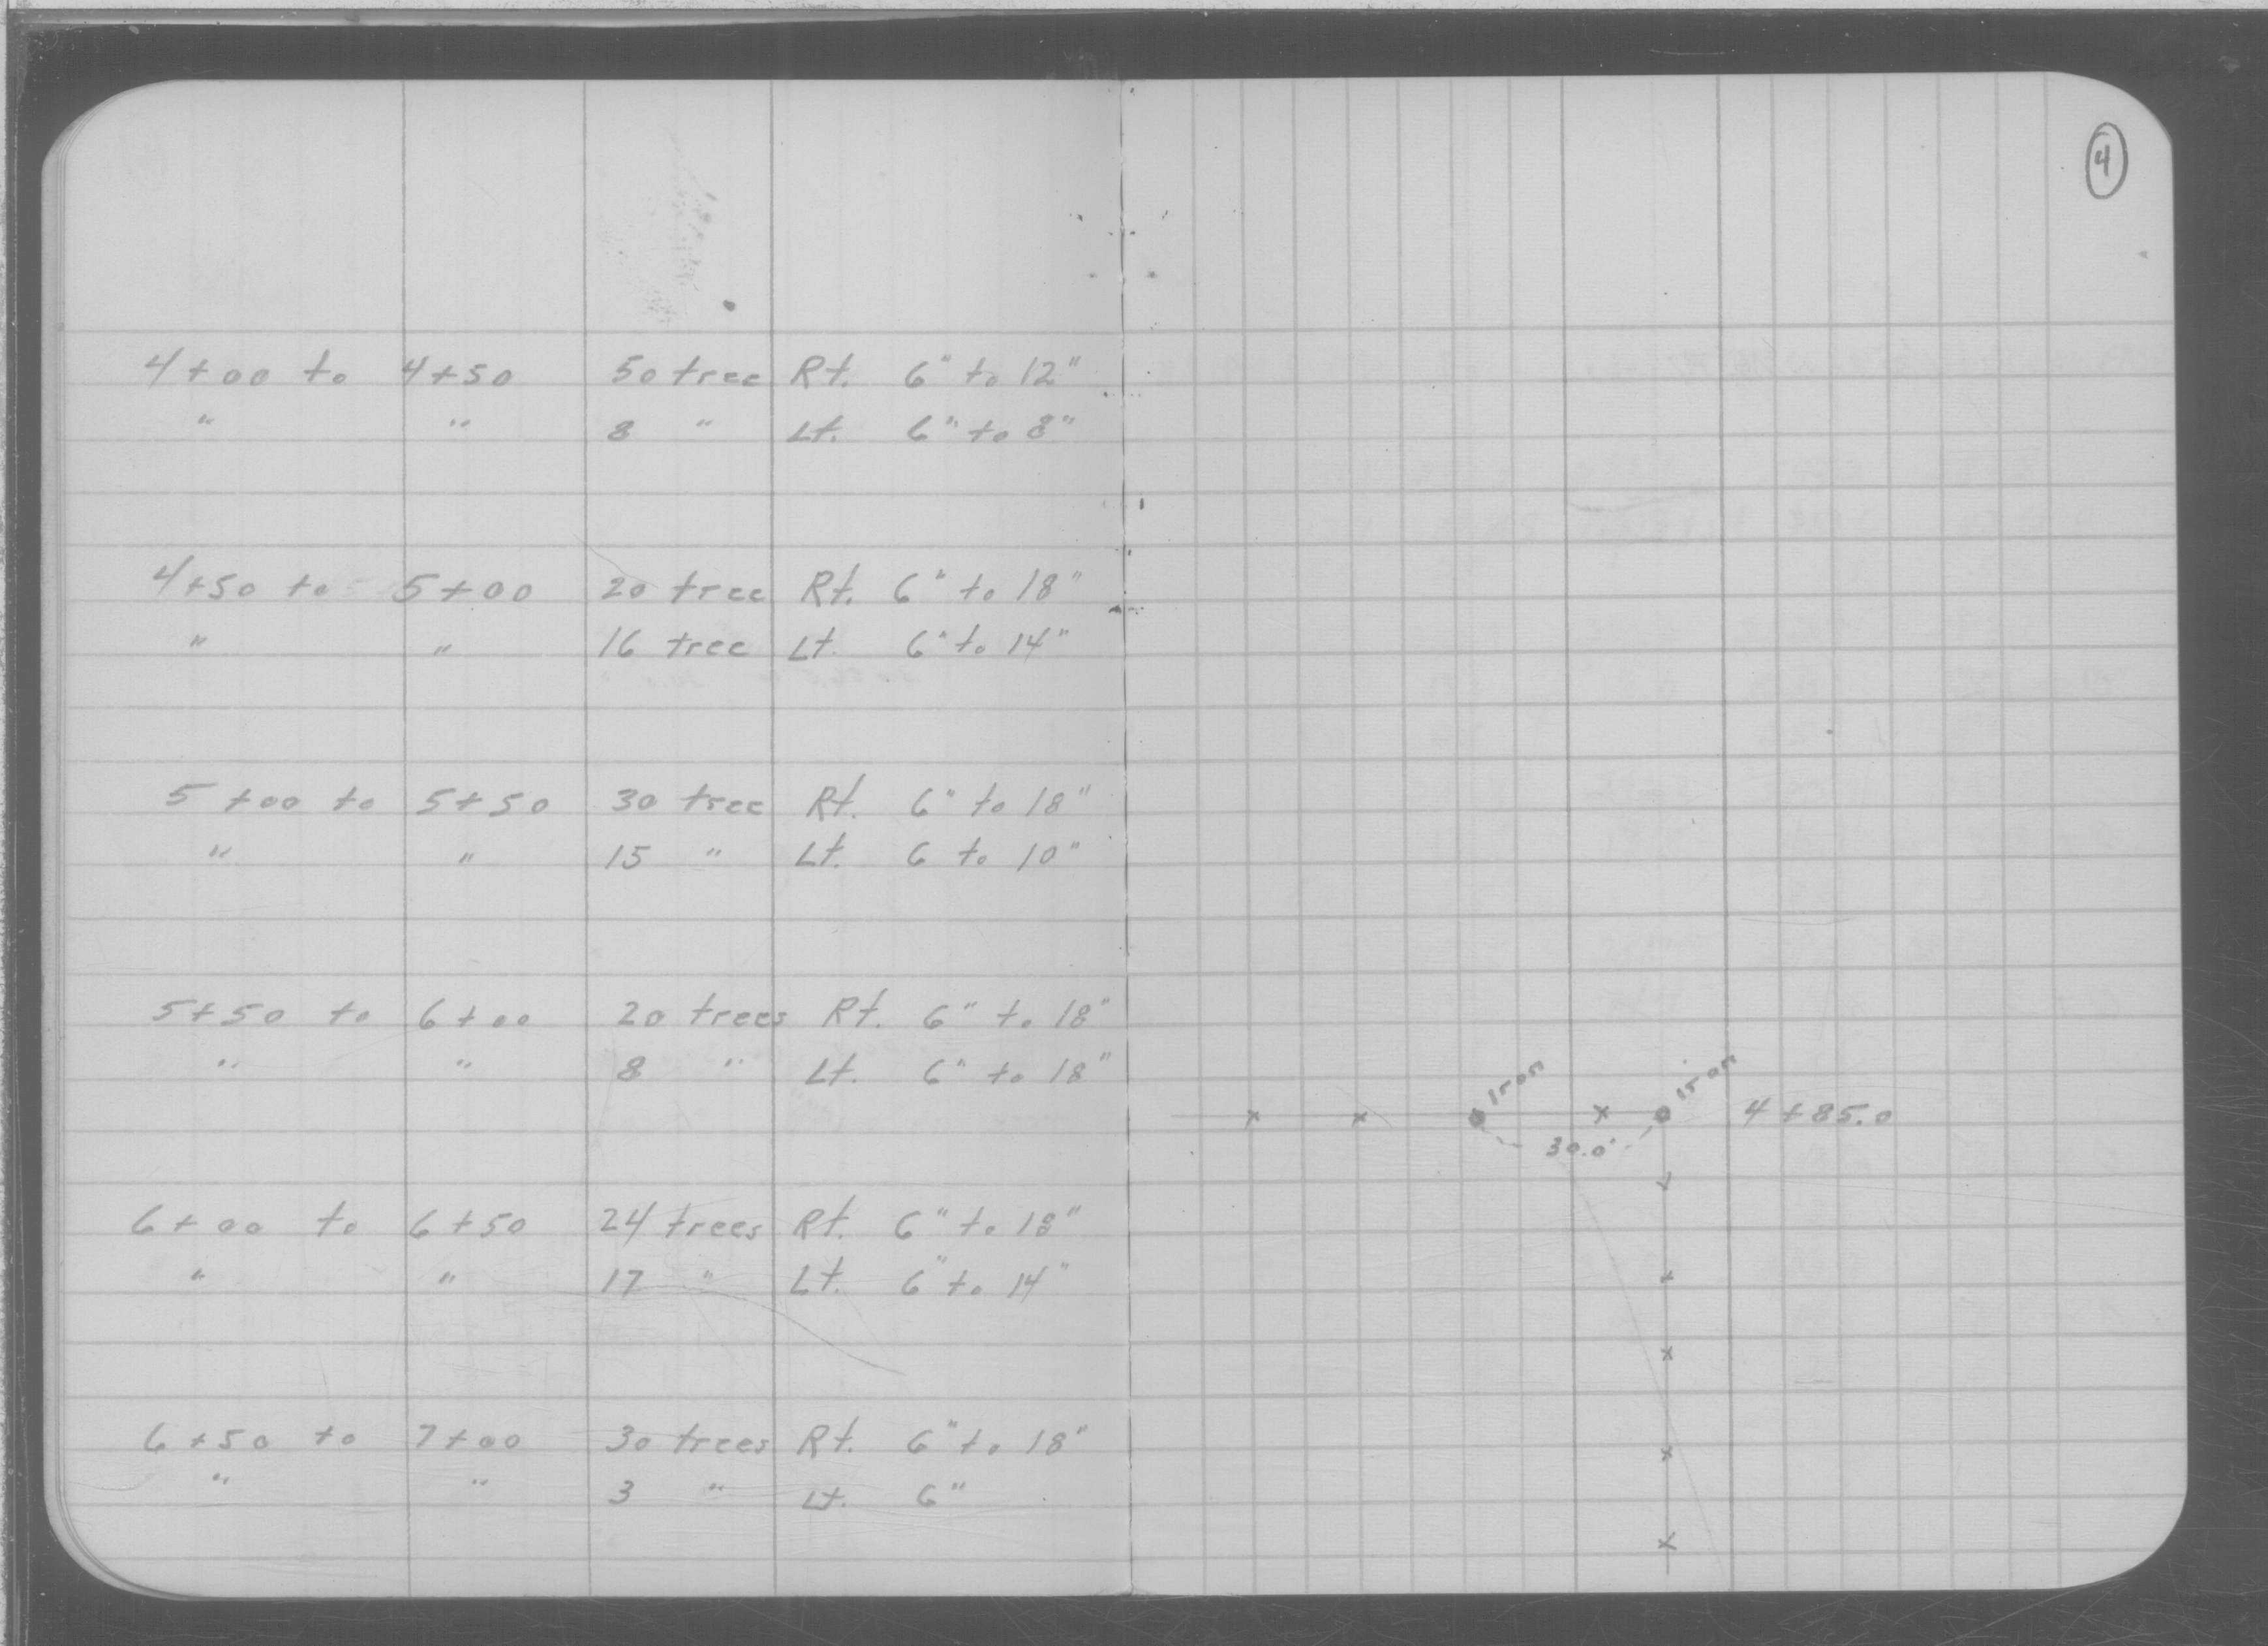 4
4+00 to 4+50 50 tree Rt. 6" to 12"
" " 8 " Lt. 6" to 8"
4+50 to 5+00 20 tree Rt. 6" to 18"
" " 16 tree Lt. 6" to 14"
5+00 to 5+50 30 tree Rt. 6" to 18"
" " 15 " Lt. 6 to 10"
5+50 to 6+00 20 trees Rt. 6" to 18"
" " 8 " Lt. 6" to 18"
6+00 to 6+50 24 trees Rt. 6" to 18"
" " 17 " Lt. 6" to 14"
6+50 to 7+00 30 trees Rt. 6" to 18"
" " 3 " Lt. 6"
Iron Iron
4+85.0
30.0'